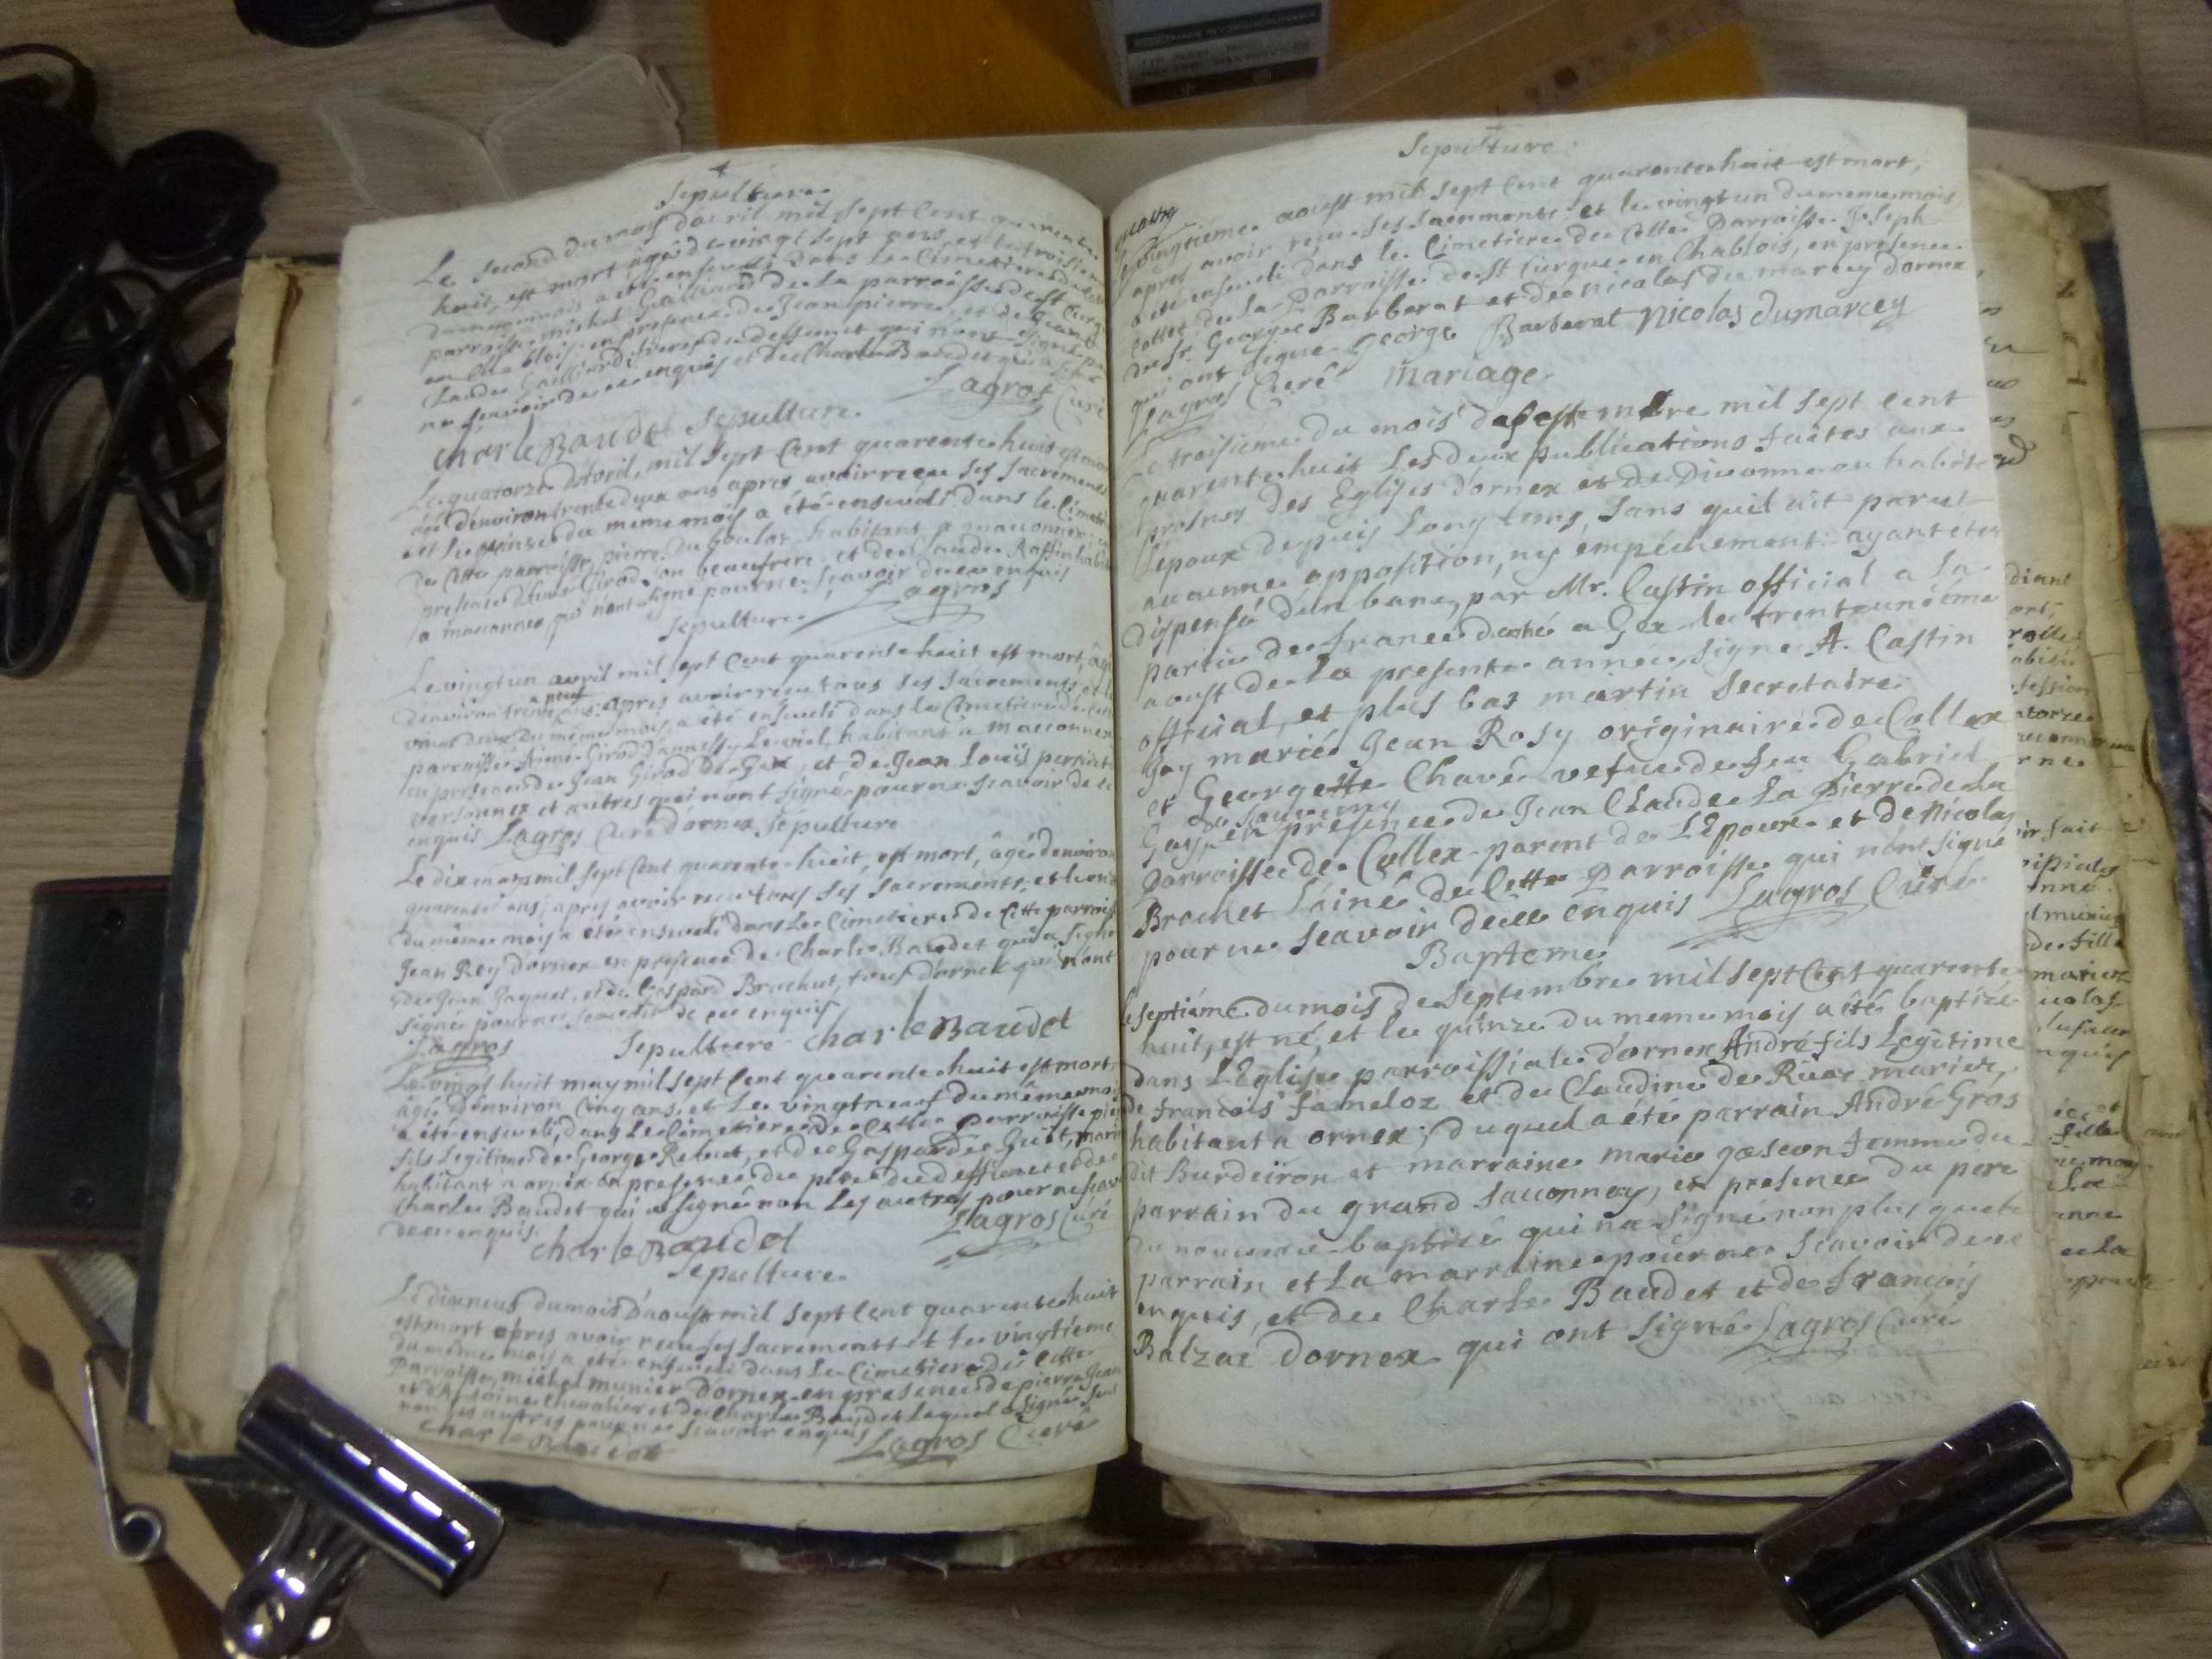 Sepulture
Le second du mois davril mil sept cent quarente
huit, est mort agé de vingt sept ans, et le troisieme
du meme mois a été enseveli dans le Cimetiere de cette
parroisse michel Gailliard de la parroisse de St Cergue
en Chablois en presence de Jean pierre, et de
Claude Gailliard freres du deffunct qui n'ont signé
ne sçavoir de ce enquis et de Charle Baudet qui a signé
Lagros Curé
charle Baudet Sepulture
Le quatorze d'Avril, mil sept Cent quarente huit est mort
agé d'environ trente deux ans apres avoir reçu ses sacrements
et le quinze du meme mois a été enseveli dans le Cimetiere
de Cette parroisse, pierre Du Goulas habitant a maconnex en
presence d'Aimé Girod son beaufrere, et de Claude Raffin habitant
a maconnex qui n'ont signé pour ne sçavoir de ce enquis
Lagros
Sepulture
Le vingt un avril mil sept Cent quarente huit est mort, âgé
d'environ trente neuf ans apres avoir reçu tous ses sacrements, et le
vingt deux du même mois a été enseveli dans le Cimetiere de cette
parroisse Aimé Girod d'annessy Le viel, habitant a maconnex
en presence de Jean Girod de Gex, et de Jean Louïs perridet
versonnex et autres qui n'ont signé pour ne scavoir de ce
enquis Lagros Curé dornex Sepulture
Le dix may mil sept Cent quarente huit, est mort, âgé denviron
quarente ans, apres avoir reçu tous ses sacrements, et le onze
du même mois a été enseveli dans Le Cimetiere de Cette parroisse
Jean Rey dornex en presence de Charle Baudet qui a signé
de Jean Jaquet, et de Gaspard Brochut, tous dornex qui n'ont
signé pour ne scavoir de ce enquis
Lagros Sepulture charle Baudet
Le vingt huit may mil sept Cent quarente huit est mort
âgé d'environ Cinq ans, et Le vingt neuf du même mois
a été enseveli, dans Le Cimetiere de Cette Parroisse pierre
fils Legitime de George Rebut, et de Gasparde Guiot, mariés
habitant a ornex en presence du pere du deffunct et de
Charle Baudet qui a signé non Les autres pour ne scavoir
de ce enquis. Lagros Curé
charle Baudet
Sepulture
Le dixneuf du mois D'aoust mil sept Cent quarente huit
est mort apres avoir reçu ses sacrements et le vingtieme
du même mois a été enseveli dans Le Cimetiere de Cette
Parroisse, michel munier Dornex en presence de pierre Jean
et d'Antoine Chevalier et de Charle Baudet Lequel a signé seul
non les autres pour ne scavoir enquis Lagros Curé
charle Baudet
Sepulture
Le vingtieme aoust mil sept Cent quarente huit est mort,
apres avoir reçu ses sacrements et le vingt un du meme mois
a été enseveli dans le Cimetiere de Cette Parroisse Joseph
Collet de la Parroisse de St Cergue en Chablois, en presence
de Sr. George Barberat et de nicolas du marcey Dornex
qui ont signé george Barberat Nicolas dumarcey
Lagros Curé Mariage
Le troisiéme du mois de septembre mil sept Cent
quarente huit Les deux publications faites aux
prosnes des Eglises d'ornex et de Divonne ou habite
L'epoux depuis Long tems, sans qu'il ait parut
aucunne opposition, ny empéchement: ayant eté
dispensé d'un banc, par Mr. Castin official a la
partie de france daté a Gex le trente uniéme
aoust de la presente année, signé A. Castin
official, et plus bas martin Secretaire
J'ay marié Jean Rosy originaire de Collex
et Georgette Chavé vefve de feu Gabriel
de Sauverny
Gay, en presence de Jean Claude La pierre de la
Parroisse de Collex parent de L'Epoux et de Nicolas
Brochet L'ainé de Cette Parroisse qui n'ont signé
pour ne scavoir de ce enquis Lagros Curé
Bapteme
Le septiéme du mois de Septembre mil sept Cent quarente
huit, est né, et le quinze du meme mois a été baptizé
dans L'Eglise parroissiale d'ornex André fils Legitime
de francois fameloz et de Claudine de Ruaz mariez,
habitant a ornex; duquel a été parrain André Gros
dit Burdeiron et marraine marie gascon femme du
parrain du grand Saconnay, en presence du pere
du nouveau baptizé qui n'a signé non plus que le
parrain et La marraine pour ne scavoir de ce
enquis, et de Charle Baudet et de francois
Balzac Dornex qui ont signé Lagros Curé